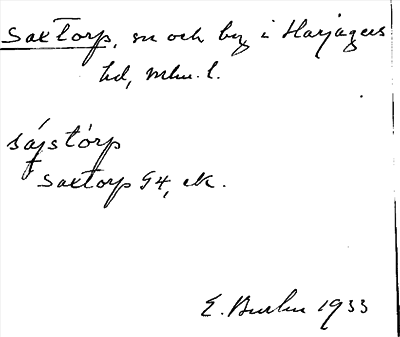 Saxtorp, sn och by i Harjagers
hd, Mlm. l.
sájstórp
Saxtorp G4, ek.
E. 1933